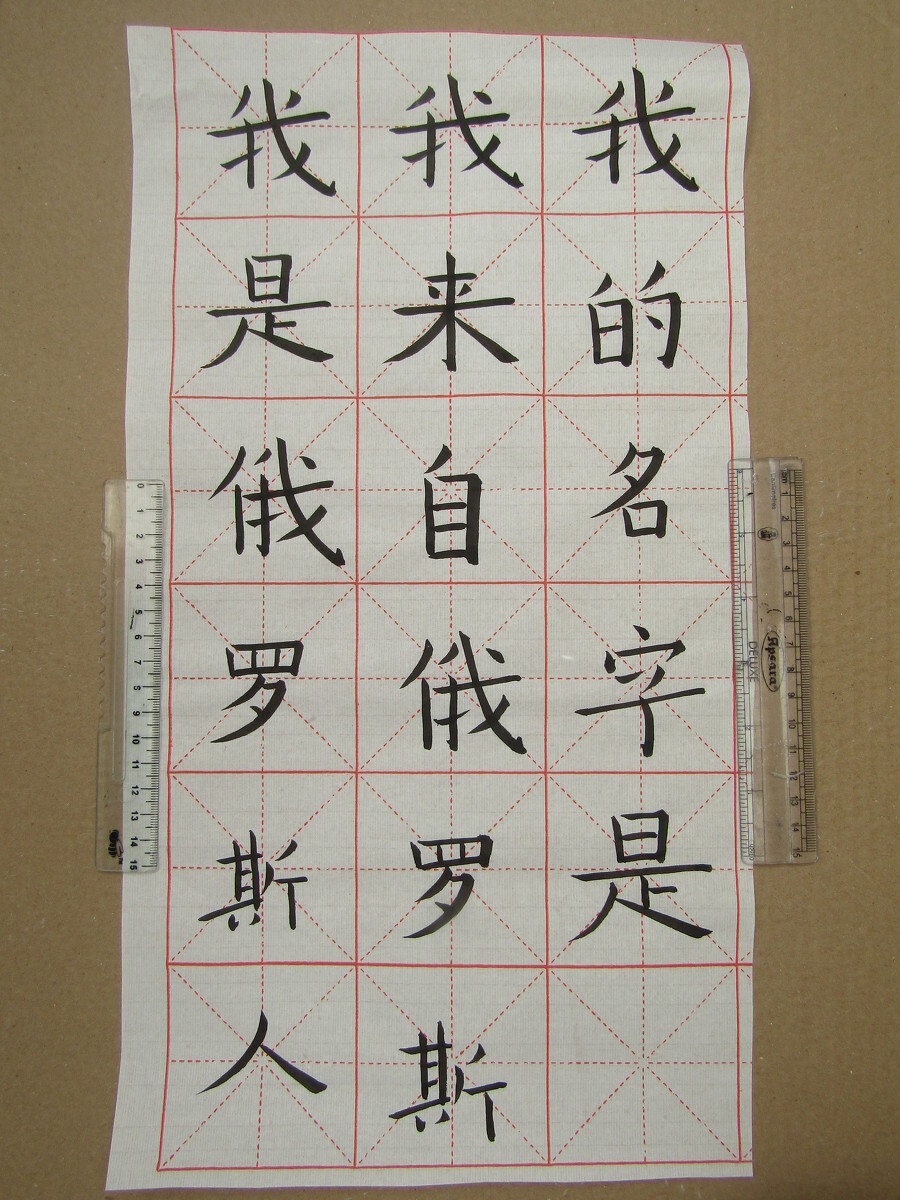 我的名字是
我来自俄罗斯
我是俄罗斯人
0 1 2 3 4 5 6 7 8 9 10 11 12 13 14 15
Apsara
DELUXE
1 2 3 4 5 6 7 8 9 10 11 12 13 14 15